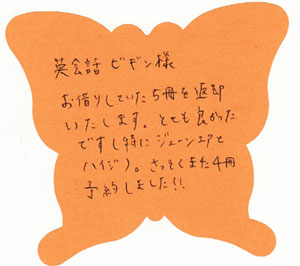 英会話 ビギン様
お借りしていた5冊を返却
いたします。とても良かった
です(特にジェーンエアと
ハイジ)。さっそくまた4冊
予約しました!!